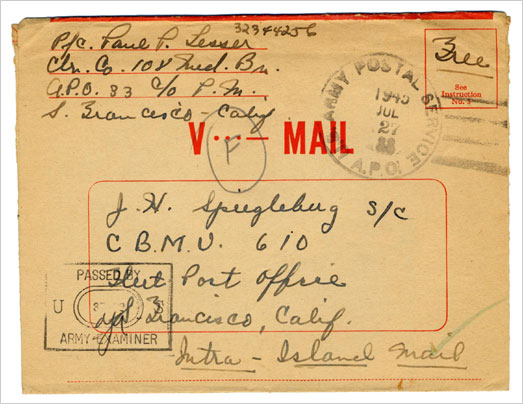 32344256
Pfc. Paul P. Lesser
Clr. Co. 108 Med. Bn.
A.P.O. 83 c/o P.M.
S. Francisco - Calif
Free
See
Instruction
No.
U.S. ARMY POSTAL SERVICE
1945
JUL
27
A.P.O.
V···— MAIL
F
J. H. S/C
C.B.M.U. 610
Fleet Post Office
S. Francisco, Calif.
Intra - Island Mail
PASSED BY
U S
ARMY EXAMINER